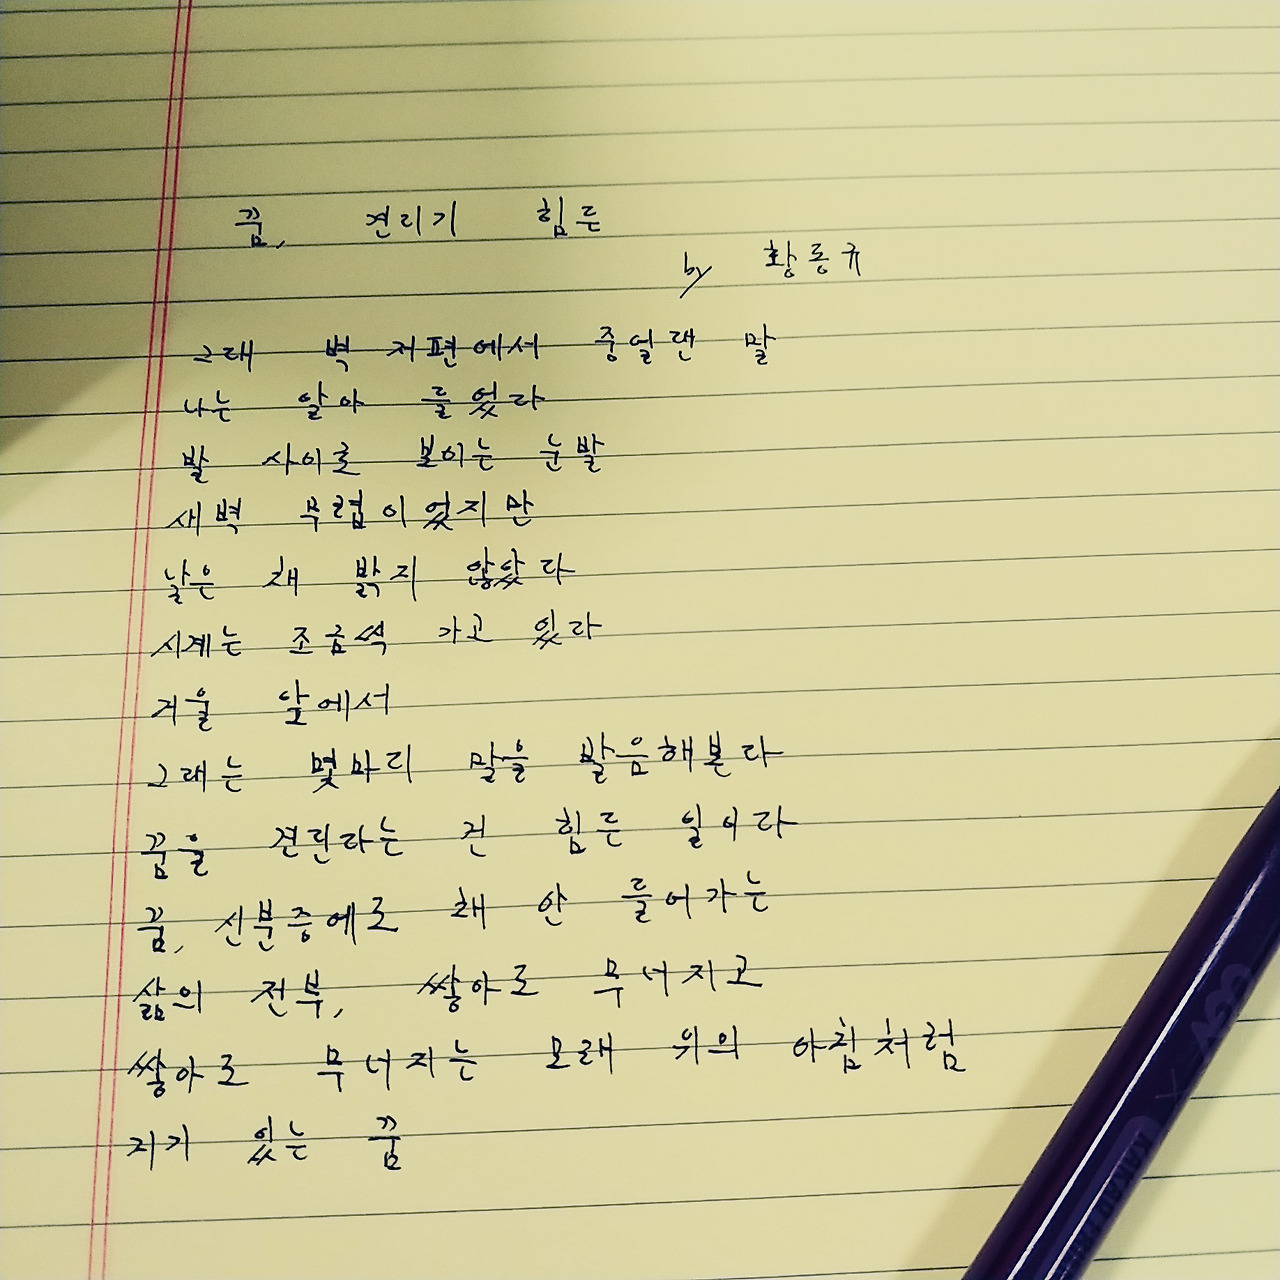 꿈, 견디기 힘든
by 황동규
그대 벽 저편에서 중얼댄 말
나는 알아 들었다
발 사이로 보이는 눈발
새벽 무렵이었지만
날은 채 밝지 않았다
시계는 조금씩 가고 있다
거울 앞에서
그대는 몇마디 말을 발음해본다
꿈을 견딘다는 건 힘든 일이다
꿈, 신분증에로 채 안 들어가는
삶의 전부, 쌓아로 무너지고
쌓아로 무너지는 모래 위의 아침처럼
저기 있는 꿈
KAKAO